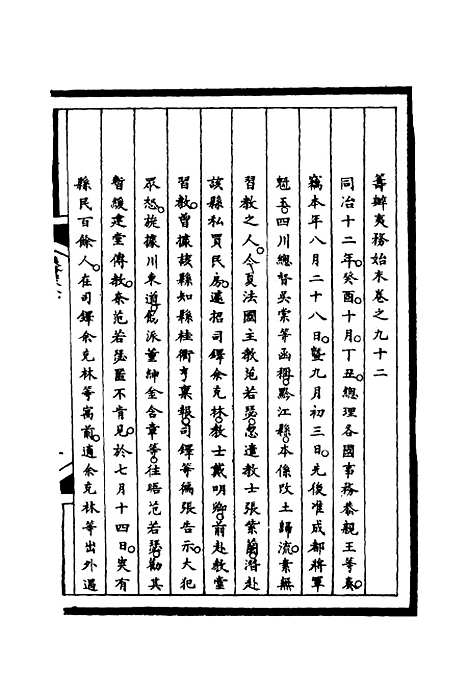 籌辦夷務始末卷之九十二
同治十二年。癸酉。十月。丁丑。總理各國事務恭親王等奏。
竊本年八月二十八日。暨九月初三日。先後准成都將軍
魁玉。四川總督吳棠等函稱。黔江縣。本係改土歸流。素無
習教之人。今夏法國主教范若瑟。忽遣教士張葉蘭。潛赴
該縣私買民房。遽招司鐸余克林。教士戴明卿。前赴教堂
習教。曾據該縣知縣桂衢亨稟報。司鐸等徧張告示。大犯
眾怒。旋據川東道飭派董紳金含章等。往晤范若瑟。勸其
暫緩建堂傳教。奈范若瑟置不肯見。於七月十四日。突有
縣民百餘人。在司鐸余克林等寓前。適余克林等出外遇